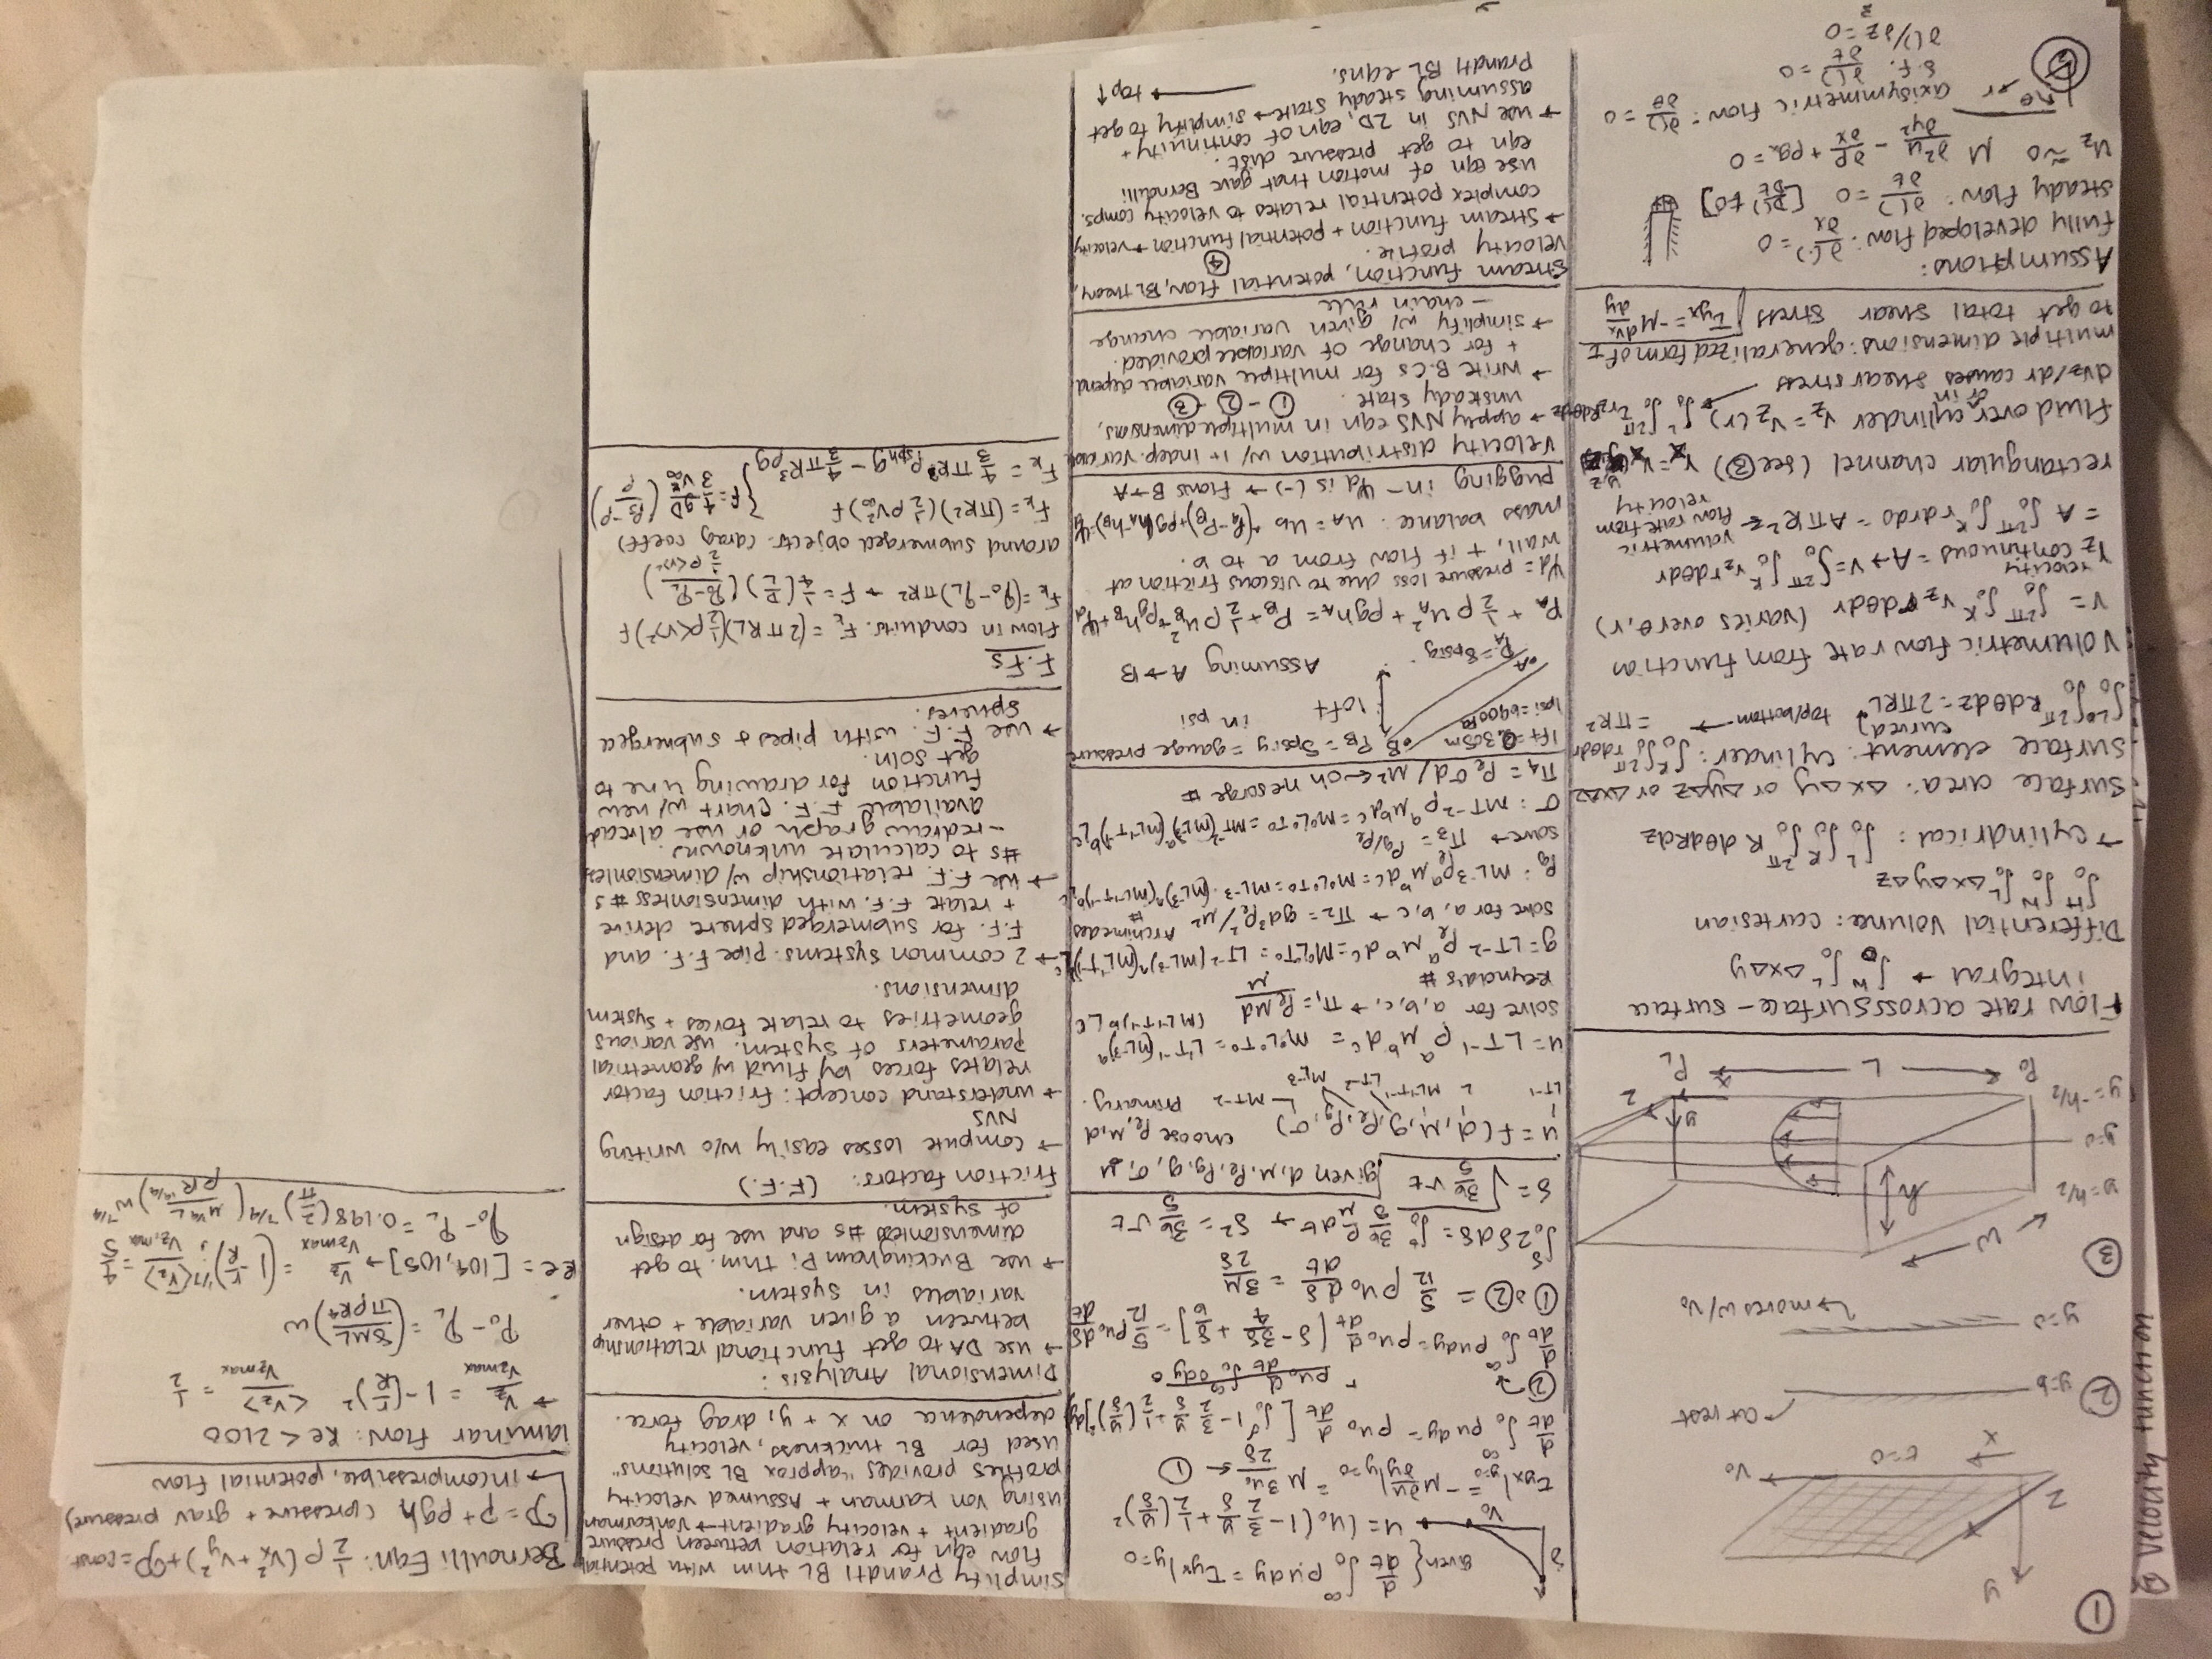 ① y
z
x t=0 v₀
② y=b → at rest
y=0 → moves w/ v₀
③ w
y=h/2
y=0 h
y=-h/2
P₀ L x P_L
y z
Flow rate across surface - surface
integral → ∫₀^W ∫₀^L ΔxΔy
Differential volume: cartesian
∫₀^H ∫₀^W ∫₀^L ΔxΔyΔz
→ cylindrical: ∫₀^L ∫₀^R ∫₀^2π R dθdRdz
Surface area: ΔxΔy or ΔyΔz or ΔxΔz
Surface element: cylinder: ∫₀^R ∫₀^2π rdθdr
∫₀^L ∫₀^2π Rdθdz = 2πRL curved top/bottom → = πR²
Volumetric flow rate from function
V = ∫₀^2π ∫₀^R v_z rdθdr (varies over θ, r)
velocity
v_z continuous = A → V = ∫₀^2π ∫₀^R v_z rdθdr
= A ∫₀^2π ∫₀^R rdrdθ = AπR² ← volumetric flow rate from velocity
rectangular channel (see ③)
fluid over or in cylinder v_z = v_z(r)
dv_z/dr causes shear stress → ∫₀^L ∫₀^2π τ_rz Rdθdz
multiple dimensions: generalized form of τ
to get total shear stress τ_yx = -μ dv_x/dy
Assumptions:
fully developed flow: ∂( )/∂x = 0
steady flow: ∂( )/∂t = 0
u_z ≈ 0 μ ∂²u/∂y² - ∂P/∂x + ρg_x = 0
⑤ axisymmetric flow: ∂( )/∂θ = 0
s.f. ∂( )/∂t = 0
∂( )/∂z = 0
δ v₀ given { d/dt ∫₀^∞ ρudy = τ_yx|y=0
u = (u₀(1 - 3/2 y/δ + 1/2 (y/δ)²
τ_yx|y=0 = -μ ∂u/∂y|y=0 = μ 3u₀/2δ ← ①
d/dt ∫₀^∞ ρudy = ρu₀ d/dt [∫₀^δ 1 - 3/2 y/δ + 1/2 (y/δ)²]dy
② → ρu₀ d/dt ∫₀^∞ 0dy
d/dt ∫₀^∞ ρudy = ρu₀ d/dt [δ - 3δ/4 + δ/6] = 5/12 ρu₀ dδ/dt
① & ② = 5/12 ρu₀ dδ/dt = 3μ/2δ
∫₀^δ 2δdδ = ∫₀^t 36/5 ρ/μ dt → δ² = 36/5 νt
δ = √(36/5 νt)
given d, μ, ρe, ρg, g, σ, u
u = f(d, μ, g, ρe, ρg, σ) choose ρe, μ, d
LT⁻¹ L ML⁻¹T⁻¹ LT⁻² ML⁻³ MT⁻² primary.
u = LT⁻¹ ρ^a μ^b d^c = M⁰L⁰T⁰ = LT⁻¹(ML⁻³)^a (ML⁻¹T⁻¹)^b L^c
solve for a, b, c, → π₁ = ρe μd/μ
Reynolds #
g = LT⁻² ρe^a μ^b d^c = M⁰L⁰T⁰ = LT⁻²(ML⁻³)^a (ML⁻¹T⁻¹)^b L^c
solve for a, b, c → π₂ = gd³ρe²/μ² Archimedes #
ρg: ML⁻³ρ^a μ^b d^c = M⁰L⁰T⁰ = ML⁻³(ML⁻³)^a (ML⁻¹T⁻¹)^b L^c
solve → π₃ = ρg/ρe
σ: MT⁻² ρ^a μ^b d^c = M⁰L⁰T⁰ = MT⁻²(ML⁻³)^a (ML⁻¹T⁻¹)^b L^c
π₄ = ρe σd/μ² ← ohnesorge #
1ft = 0.305m B P_B = 5psig = gauge pressure
1psi = 6900Pa in psi
10ft
A P_A = 8psig Assuming A→B
P_A + ½ρu_A² + ρgh_A = P_B + ½ρu_B² + ρgh_B + Ψd
Ψd = pressure loss due to viscous friction at
wall, + if flow from a to b.
mass balance: u_A = u_B
plugging in - Ψd is (-) → flows B→A
velocity distribution w/ 1+ indep. variable
→ apply NVS eqn in multiple dimensions,
unsteady state. ① - ② - ③
→ write B.Cs for multiple variable depend
+ for change of variable provided.
→ simplify w/ given variable change
- chain rule
Stream function, potential flow, BL theory, ④
velocity profile.
→ stream function + potential function → velocity
complex potential relates to velocity comps.
use eqn of motion that gave Bernoulli
eqn to get pressure dist.
→ use NVS in 2D, eqn of continuity +
assuming steady state → simplify to get
prandtl BL eqns. → top↑
simplify Prandtl BL thm with potential
flow eqn for relation between pressure
gradient + velocity gradient → vonkarman
using von karman + assumed velocity
profiles provides "approx BL solutions"
used for BL thickness, velocity
dependence on x + y, drag force.
Dimensional Analysis:
→ use DA to get functional relationship
between a given variable + other
variables in system.
→ use Buckingham Pi Thm. to get
dimensionless #s and use for design
of system.
Friction factors: (F.F.)
→ compute losses easily w/o writing
NVS
→ understand concept: friction factor
relates forces by fluid w/ geometrical
parameters of system. use various
geometries to relate forces + system
dimensions.
→ 2 common systems: pipe F.F. and
F.F. for submerged sphere derive
+ relate F.F. with dimensionless #s
→ use F.F. relationship w/ dimensionless
#s to calculate unknowns.
- redraw graph or use already
available F.F. chart w/ new
function for drawing line to
get soln.
→ use F.F. with pipes & submerged
spheres.
F.Fs
flow in conduits. F_k = (2πRL)(½ρ<v>²)f
F_k = (P₀-P_L)πR² → F = ¼(D/L)((P₀-P_L)/(½ρ<v>²))
around submerged objects. (drag coeff)
F_k = (πR²)(½ρv∞²)f
F_k = 4/3 πR³ρsph g - 4/3 πR³ρg } f = 4/3 gD/v∞² (ρs-ρ/ρ)
Bernoulli Eqn: ½ρ(vx²+vy²)+P = const
P = p + ρgh (pressure + grav pressure)
→ incompressible, potential flow
laminar flow: Re < 2100
→ vz/vzmax = 1-(r/R)² <vz>/vzmax = ½
P₀-P_L = (8μL/πρR⁴)w
Re = [10⁴, 10⁵] → vz/vzmax = (1-r/R)^1/7; <vz>/vz,max = 4/5
P₀-P_L = 0.198(2/π)^7/4 (μ^1/4 L/ρR^19/4) w^7/4
velocity function